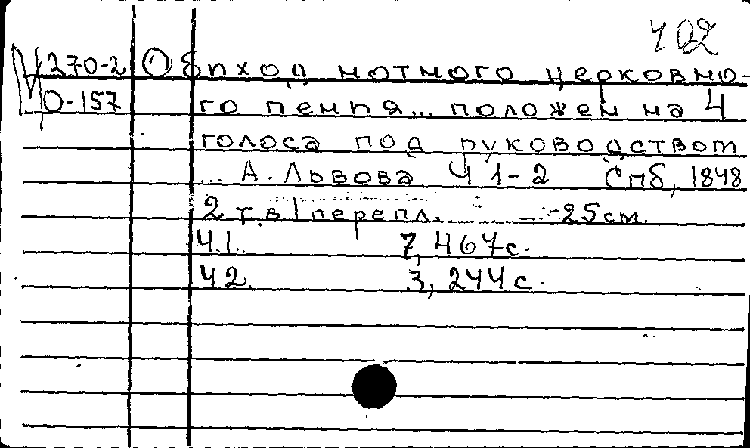 402
270-2 Обиход нотного церковно-
О-157 го пения... положен на 4
голоса под руководством
... А. Львова Ч 1-2 Спб, 1848
2 т. в 1 перепл. 25 см.
Ч.1. 7, 467 с.
Ч2. 3, 244 с.